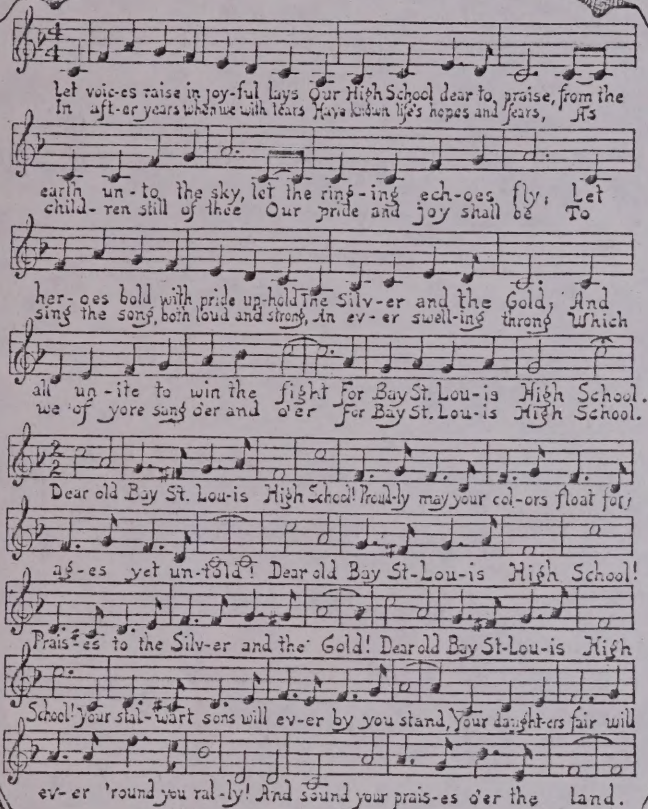 4 4
Let voic-es raise in joy-ful lays Our High School dear to praise, from the
In aft-er years when we with tears Have known life's hopes and fears, As
earth un-to the sky, let the ring-ing ech-oes fly; Let
child-ren still of thee Our pride and joy shall be To
her-oes bold with pride up-hold The Silv-er and the Gold; And
sing the song, both loud and strong, An ev-er swell-ing throng Which
all un-ite to win the fight For Bay St. Lou-is High School.
we of yore sang o'er and o'er For Bay St. Lou-is High School.
2 2
Dear old Bay St. Lou-is High School! Proud-ly may your col-ors float for,
ag-es yet un-told! Dear old Bay St-Lou-is High School!
Prais-es to the Silv-er and the Gold! Dear old Bay St-Lou-is High
School! Your stal-wart sons will ev-er by you stand, Your daught-ers fair will
ev-er 'round you ral-ly! And sound your prais-es o'er the land.